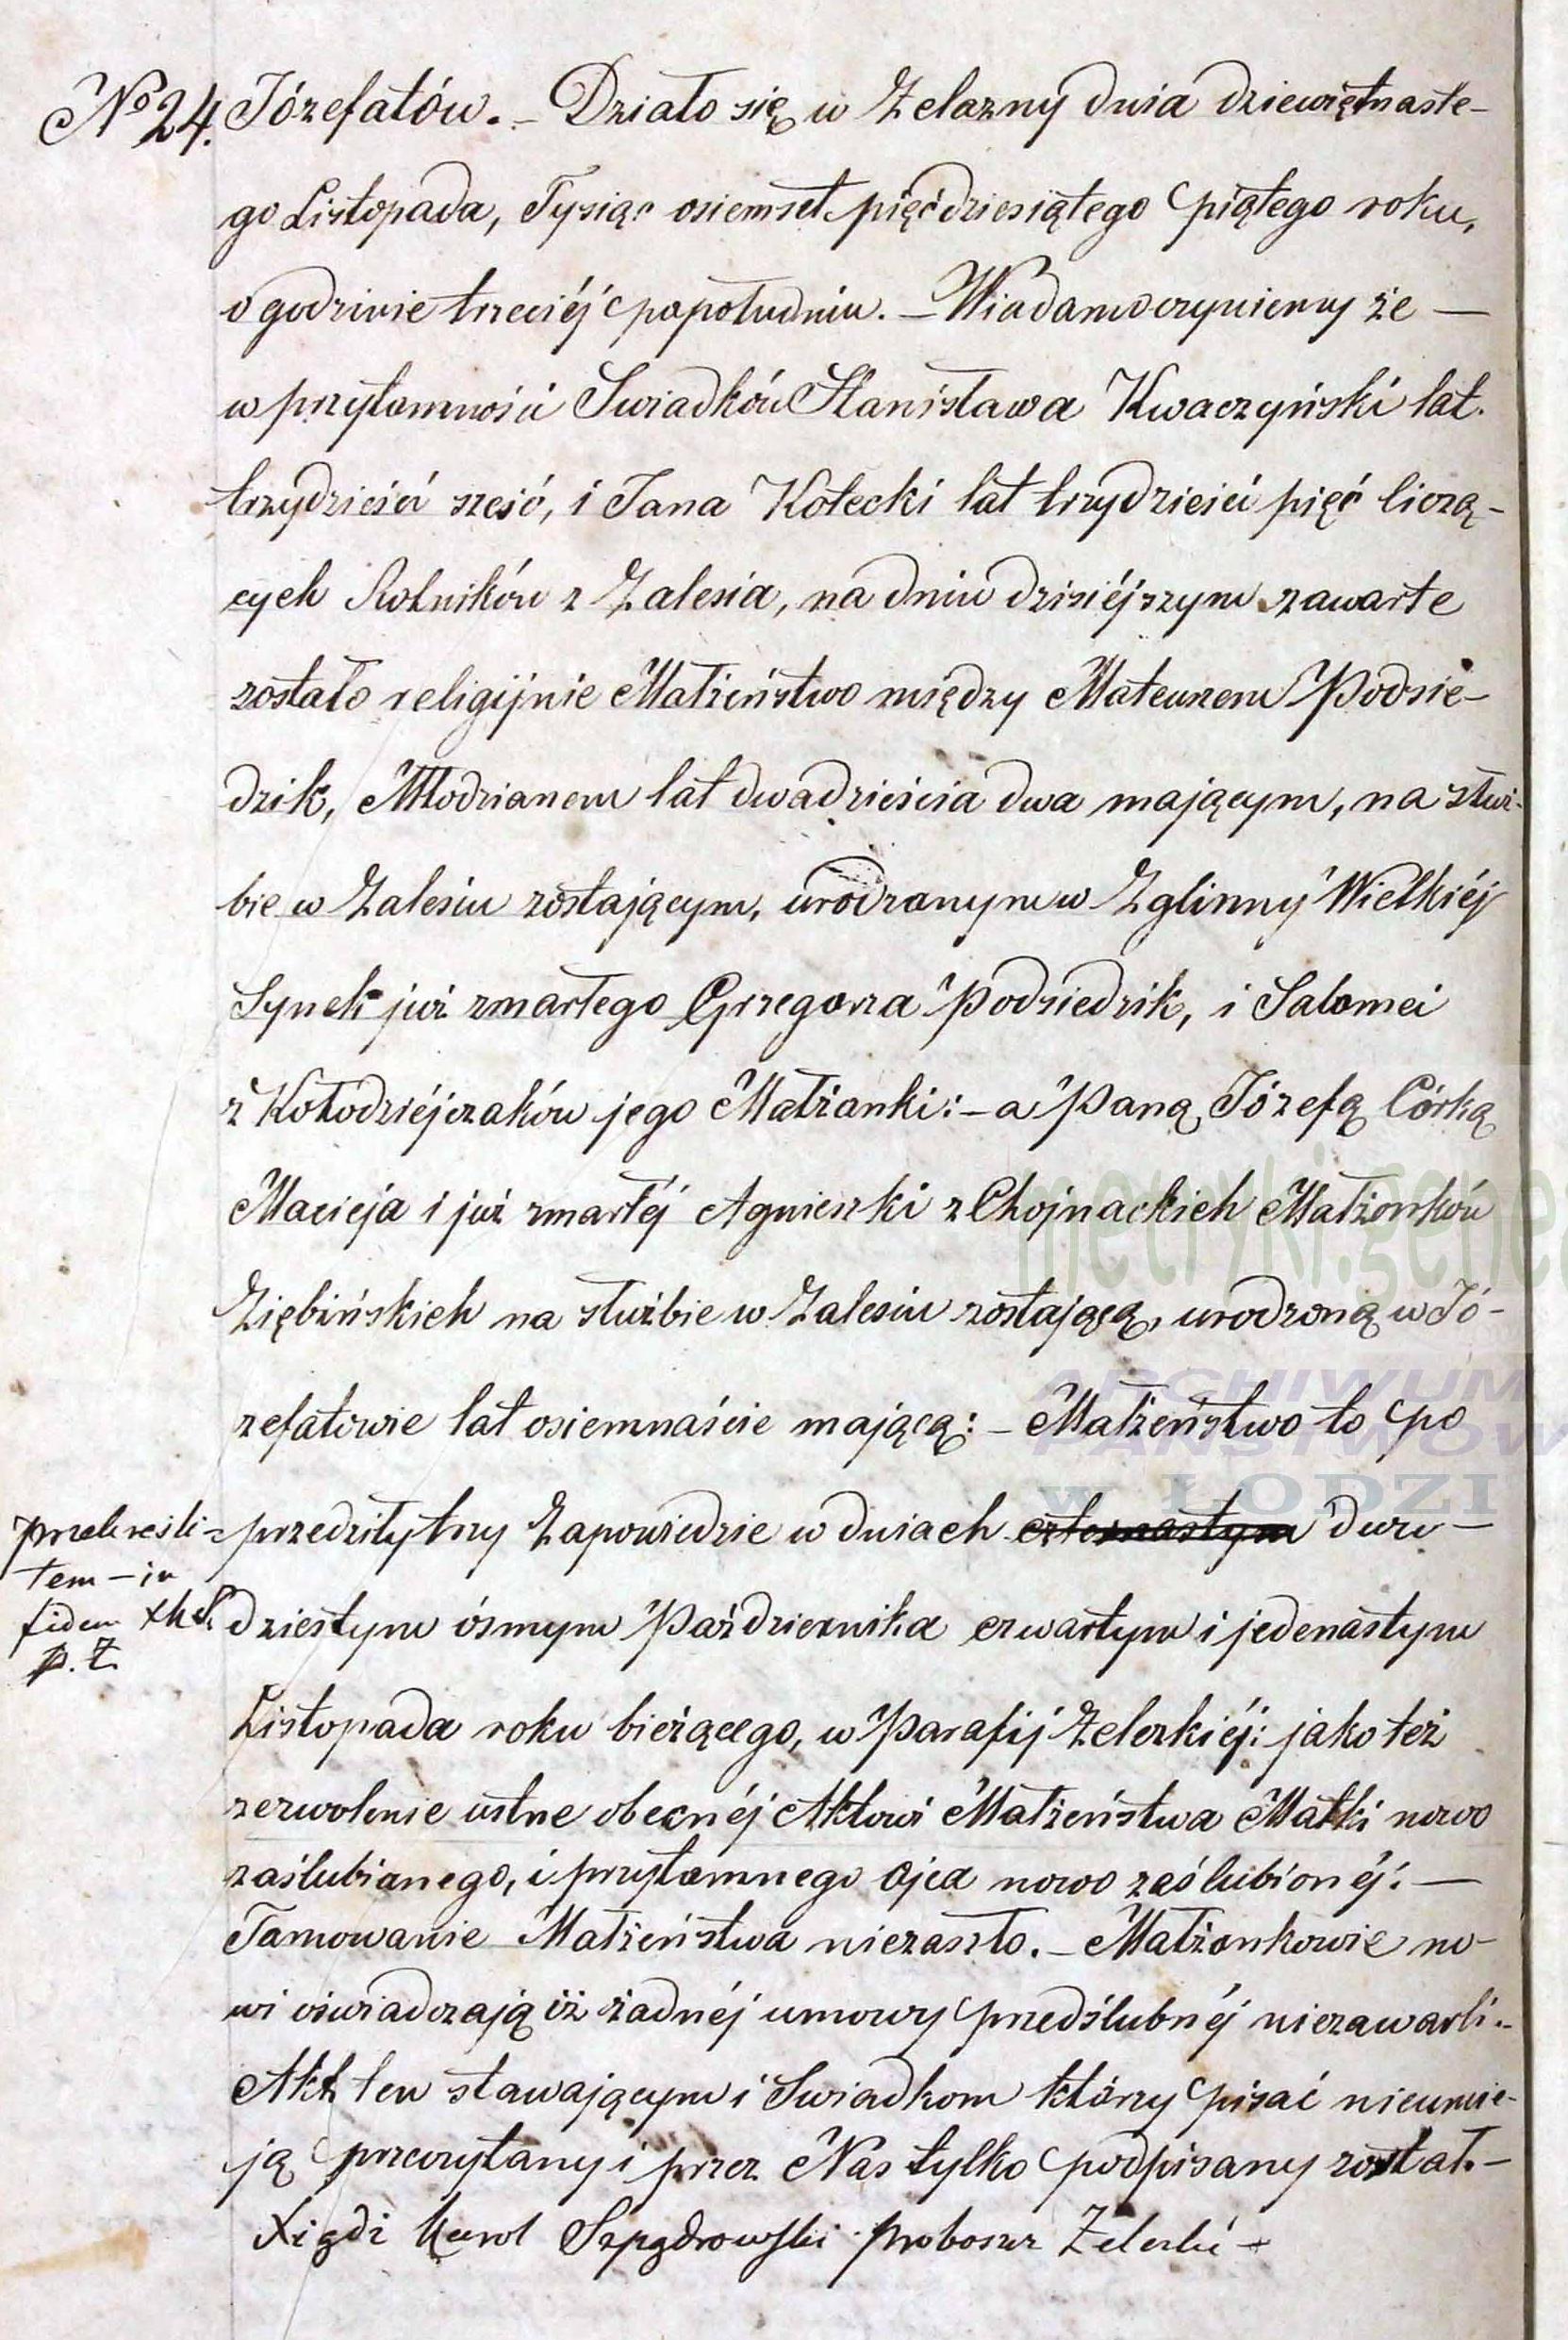 № 24. Józefatów. – Działo się w Żelazny dnia dziewiętnaste-
go Listopada, Tysiąc osiemset pięćdziesiątego piątego roku,
o godzinie trzeciéj popołudniu. – Wiadamo czyniemy że —
w przytomności Swiadków Stanisława Kwaczyński lat.
trzydzieści sześć, i Jana Kołecki lat trzydzieści pięć liczą-
cych Rolników z Zalesia, na dniu dzisiéjszym zawarte
zostało religijnie Małżeństwo między Mateuszem Podsie-
dzik, Młodzianem lat dwadzieścia dwa mającym, na służ-
bie w Zalesiu zostającym, urodzonym w Zglinny Wielkiéj
Synek już zmarłego Grzegorza Podsiedzik, i Salomei
z Kołodziéjczaków jego Małżanki: – a Paną Józefą Córką
Macieja i już zmarłéj Agnieszki z Chojnackich Małżonków
Ziębińskich na służbie w Zalesiu zostającą, urodzoną w Jó-
zefatowie lat osiemnaście mającą: – Małżeństwo to po
przedziły trzy Zapowiedzie w dniach czternastym dwu –
dziestym ósmym Października czwartym i jedenastym
Listopada roku bieżącego, w Parafij Żelezkiéj: jako też
zezwolenie ustne obecnéj Aktowi Małżeństwa Matki nowo
zaślubianego, i przytomnego Ojca nowo zaślubionéj. —
Tamowanie Małżeństwa niezaszło. – Małżonkowie no-
wi oświadczają iż żadnéj umowy przedślubnéj niezawarli. –
Akt ten stawającym i Swiadkom którzy pisać nieumie-
ją przeczytany i przez Nas tylko podpisany został. –
Xiądz Karol Szpądrowski Proboszcz
przekreśli-
łem – in
fidem
P. Ż.
metryki.gene
ARCHIWUM
PAŃSTWOW
w ŁODZI